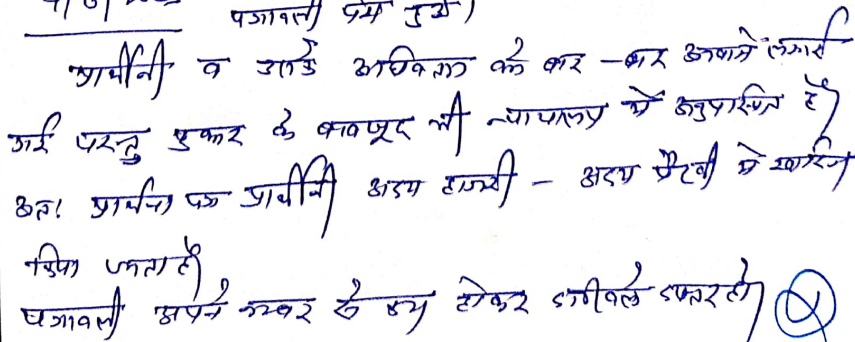 पत्रावली पेश हुई।
प्रार्थीनी व उसके अधिवक्ता को बार-बार आवाजे लगाई
गई परन्तु पुकार के बावजूद भी न्यायालय में अनुपस्थित है।
अतः प्रार्थना पत्र प्रार्थीनी अदम हाजरी - अदम पैरवी मे खारिज
किया जाता है।
पत्रावली अपने नम्बर से कम होकर दाखिल दफ्तर हो।